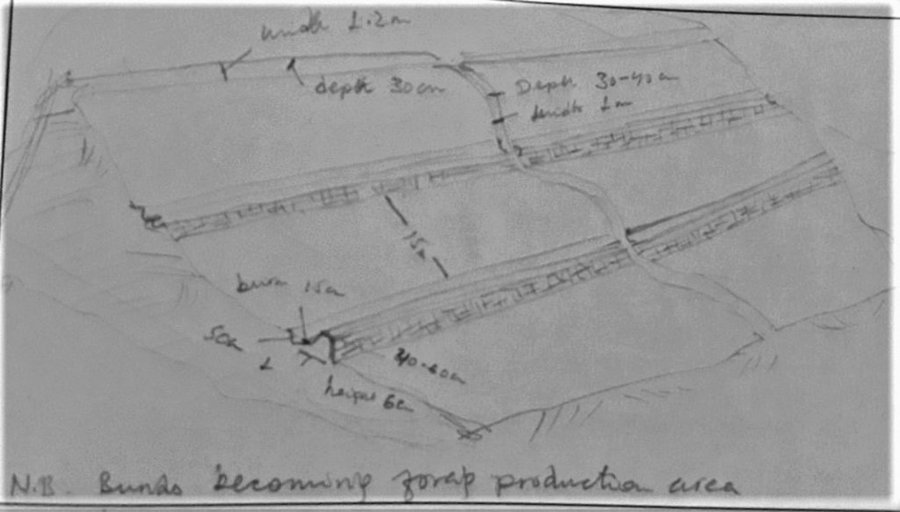 width 1.2m
depth 30cm
Depth 30-40cm
width 1m
15m
berm 15cm
50cm
40-60cm
height 60
N.B. Bunds becoming forage production area